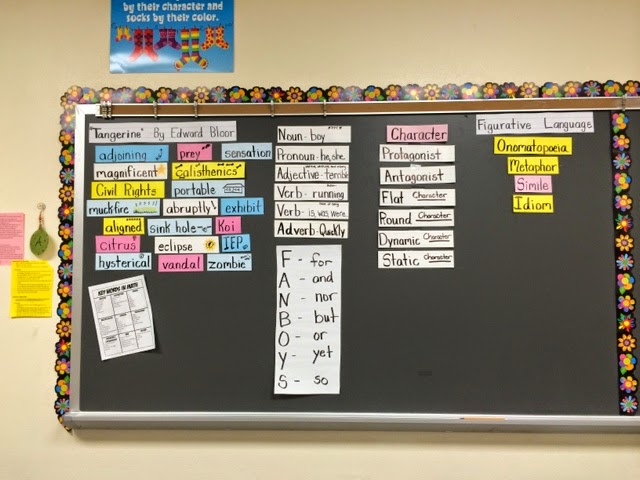 by their character and
socks by their color.
"Tangerine" By Edward Bloor
adjoining prey sensation
magnificent calisthenics
Civil Rights portable
muckfire abruptly exhibit
aligned sink hole Koi
citrus eclipse IEP
hysterical vandal zombie
KEY WORDS IN MATH
Noun-boy
Pronoun-he, she
Adjective-terrible
Verb-running
Verb-is, was, were
Adverb-Quickly
F - for
A - and
N - nor
B - but
O - or
Y - yet
S - so
Character
Protagonist
Antagonist
Flat Character
Round Character
Dynamic Character
Static Character
Figurative Language
Onomatopoeia
Metaphor
Simile
Idiom